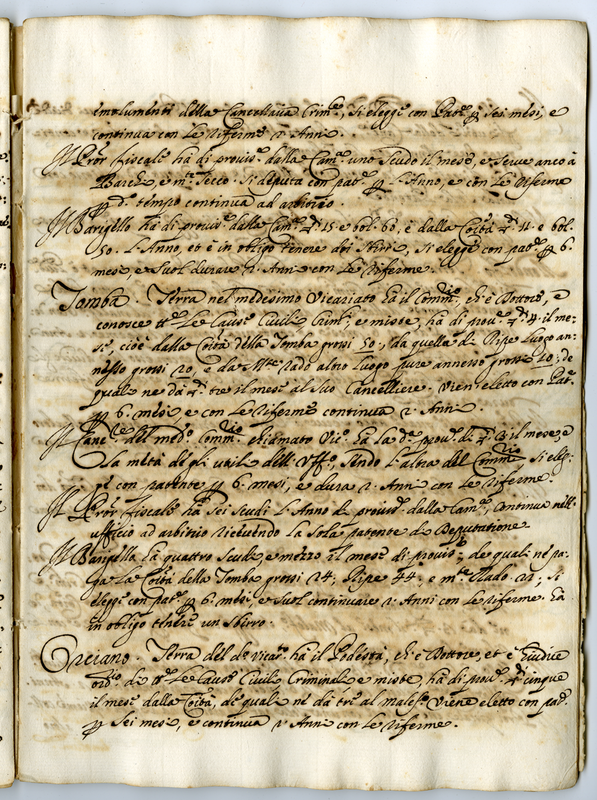 emolumenti della Cancellaria Crim.le, si elegge con Pat.e p sei mesi, e
continua con le riferme 2 Anni.
Il Pror fiscale hà di provis.e dalla Cam.a uno Scudo il mese, e serve anco à
Barchi, e m.te secco. Si deputa con pat.e p 1. Anno, e con le riferme
p d.o tempo continua ad arbitrio.
Il Barigello hà di provis.e dalla Cam.a 15 e bol. 60, e dalla Coità 11. e bol.
50. l'Anno, et è in obligo tenere doi Sbirri, si elegge con pat.e p 6.
mesi, e suol durare 2. Anni con le riferme.
Tomba. Terra nel medesimo Vicariato hà il Comm.rio, ch'è Dottore, e
conosce le Cause Civili Crim.li, e miste, hà di prov.e il me-
se, cioè dalla Coità della Tomba grossi 50:, da quella di Ripe luoco an-
nesso grossi 20, e da M.te rado altro luogo pure annesso grossi 20; de
quali ne dà tre il mese al suo Cancelliere. Vien eletto con Pat.e
p 6. mesi e con le riferme continua 2. Anni.
Il Canc.re del med.o Comm.rio chiamato Vic.o hà la d.a prov.e di 3 il mese, e
la metà degli utili dell'Uff.o, sendo l'altra del Comm.rio si eleg-
ge con patente p 6. mesi, e dura 2. Anni con le riferme.
Il Pror fiscale hà sei Scudi l'Anno di provis.e dalla Cam.a, continua nell'
ufficio ad arbitrio ricevendo la sola patente di Deputatione.
Il Barigello hà quattro Scudi e mezzo il mese di provis.e, de quali ne pa-
ga la Coità della Tomba grossi 24; Ripe 44. e m.te Rado 22; si
elegge con pat.e p 6. mesi, e suol continuare 2. Anni con le riferme. Hà
in obligo tenere un Sbirro.
Orciano. Terra del d.o Vicar.o hà il Podestà, ch'è Dottore, et è Giudice
ord.rio di le Cause Civili Criminali e miste, hà di prov.e cinque
il mese dalla Coità, de quali ne dà tre al malef.o Viene eletto con pat.e
p sei mesi, e continua 2 Anni con le riferme.